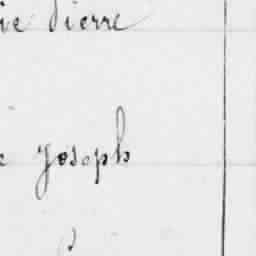 ie Pierre
e Joseph